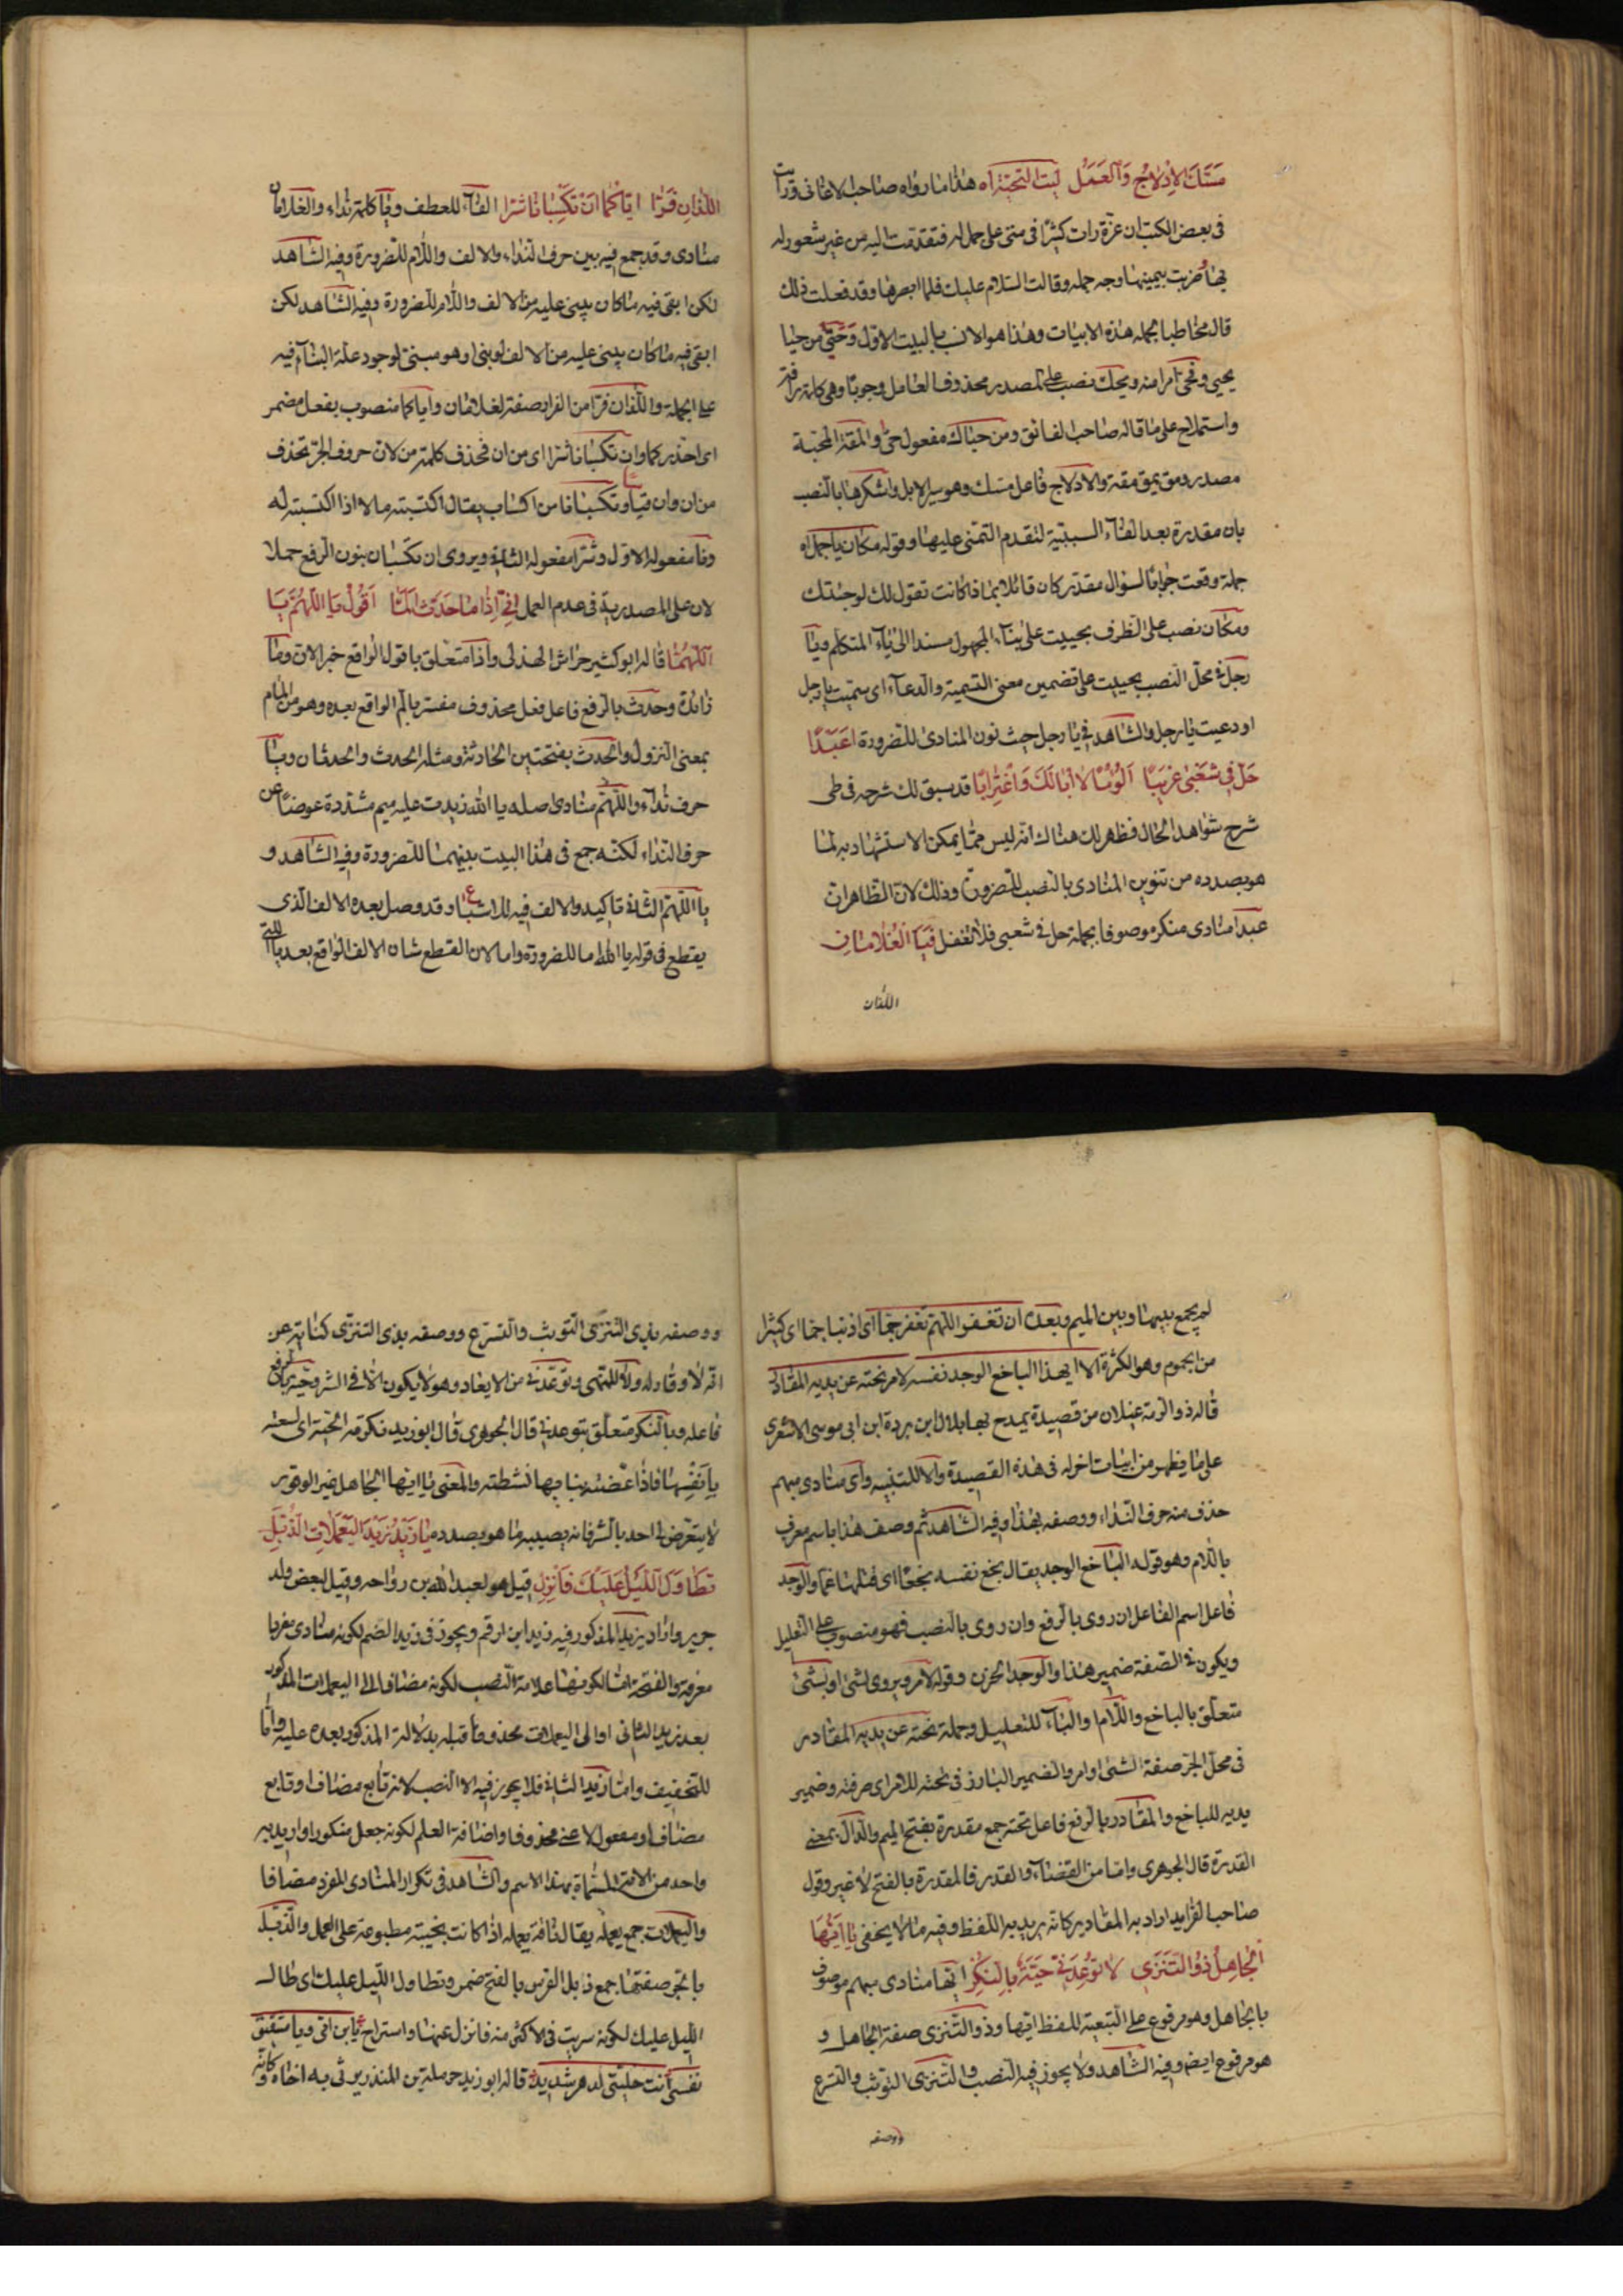 مَسَّكَ الاِدْلاجُ وَالعَمَلُ لَيتَ التَحيّةَ آه هذا ما رواه صاحب الاغانى ورايت
فى بعض الكتب ان عزة رات كثيرًا فى منى على جمل له فتقدمت اليه من غير شعور له
بها وضربت بيمينها وجه جمله وقالت السلام عليك فلما ابصرها وقد فعلت ذلك
قال مخاطبا بجمله هذه الابيات وهذا هو الانسب بالبيت الاول وَحَيّى من حيا
يحيى وفحى امرا منه ويحك نصب على المصدر محذوف العامل وجوبا وهى كلمة
واستملاح على ما قاله صاحب الفائق ومن حياك مفعول حى والمقة المحبة
مصدر ومق يمق مقة والادلاج فاعل مسك وهو سير الابل واشكرها بالنصب
بان مقدرة بعد الفاء السببية لتقدم التمنى عليها وقوله مكان يا جمل اه
جملة وقعت جوابا لسؤال مقدر كان قائلا بماذا كانت تقول لك لو حيتك
ومكان نصب على الظرف بحييت على بناء المجهول مسندا الى ياء المتكلم ويا
رجل فى محل النصب بحييت على تضمين معنى التسمية والدعاء اى سميت يا رجل
او دعيت يا رجل والشاهد فى يا رجل حيث نون المنادى للضرورة اعَبَدًا
حَلّ فى شُعَبَى غَرِيبًا اَلُؤْمًا لا اَبَا لَكَ وَاغْتِرَابًا قد سبق لك شرحه فى طى
شرح شواهد الحال فظهر لك هناك انه ليس مما يمكن الاستشهاد به لما
هو بصدده من تنوين المنادى بالنصب للضرورة وذلك لان الظاهر ان
عبدا منادى منكر موصوفا بجملة حل فى شعبى فلا تغفل فَيَا الغُلامَانِ
اللذان
اللَّذَانِ فَرّا ايّاكُمَا اَنْ تَكسِبَانا شَرّا الفاء للعطف ويا كلمة نداء والغلامان
منادى وقد جمع فيه بين حرف النداء والالف واللام للضرورة وفيه الشاهد
لكن ابقى فيه ما كان يبنى عليه من الالف واللام للضرورة وفيه الشاهد لكن
ابقى فيه ما كان يبنى عليه من الالف لو بنى او هو مبنى لوجود علة البناء فيه
على الجملة واللذان فرا من الفرار صفة لغلامان واياكما منصوب بفعل مضمر
اى احذركما وان تكسبانا شرا اى من ان فحذف كلمة من لان حروف الجر تحذف
من ان وان قياسا وتكسبانا من اكساب يقال اكتسبته مالا اذا اكتسبته له
ونا مفعوله الاول وشرا مفعوله الثانى ويروى ان تكسبان بنون الرفع حملا
لان على المصدرية فى عدم العمل اِنّى اِذَا مَا حَدَثٌ اَلَمَّا اَقُولُ يَا اللّهُمَّ يَا
اللّهُمَّا قاله ابو كثير حراش الهذلى واذا متعلق باقول الواقع خبر الان وما
زائدة وحدث بالرفع فاعل فعل محذوف مفسر بالم الواقع بعده وهو من المام
بمعنى النزول والحدث بفتحتين الحادثة ومثله الحدث والحدثان ويا
حرف نداء واللهم منادى اصله يا الله زيدت عليه ميم مشددة عوضًا عن
حرف النداء لكنه جمع فى هذا البيت بينهما للضرورة وفيه الشاهد و
يا اللهم الثانى تاكيد والالف فيه للاشباع وقد وصل بعده الالف الذى
يقطع فى قوله يا اللهما للضرورة واما لان القطع شان الالف الواقع بعد يا اللتى
لم يجمع بينها وبين الميم وبعده ان تغفر اللهم تغفر جما اى اذنبا جما اى كثيرا
من الجموم وهو الكثرة الا ايهذا الباخع الوجد نفسه لامر نحته عن يديه المقادر
قاله ذو الرمة غيلان من قصيدة يمدح بها بلال ابن بردة ابن ابى موسى الاشعرى
على ما يظهر من ابيات اخر له فى هذه القصيدة والا للتنبيه واى منادى مبهم
حذف منه حرف النداء ووصفه بهذا وفيه الشاهد ثم وصف هذا باسم معرف
باللام وهو قوله الباخع الوجد يقال بخع نفسه بخعًا اى قتلها غما والوجد
فاعل اسم الفاعل ان روى بالرفع وان روى بالنصب فهو منصوب على التعليل
ويكون فى الصفة ضمير هذا والوجد الحزن وقوله لامر ويروى لشئ او بشئ
متعلق بالباخع واللام والباء للتعليل وجملة نحته عن يديه المقادر
فى محل الجر صفة الشئ او امر والضمير البارز فى نحته للامر اى صرفته وضمير
يديه للباخع والمقادر بالرفع فاعل نحته جمع مقدرة بفتح الميم والدال بمعنى
القدرة قال الجوهرى واما من القضاء والقدر فالمقدرة بالفتح لا غير وقول
صاحب الفرايد اراد به المقادير كانه يريد به اللفظ وفيه ما لا يخفى يا اَيّهَا
الجَاهِلُ ذُو التَّنَزّى لا تُوعِدَنّى حَيَّةً بِالنَكزِ ايّها منادى مبهم موصوف
بالجاهل وهو مرفوع على التبعية للفظ ايّها وذو التنزى صفة الجاهل و
هو مرفوع ايضا وفيه الشاهد ولا يجوز فيه النصب والتنزى التوثب والتسرع
ووصفه
ووصفه بذى التنزى التوثب والتسرع ووصفه بذى التنزى كناية عن
انه لا وقار له ولا للنهى وتوعدنى من الايعاد وهو لا يكون الا فى الشر وحية بالرفع
فاعله وبالنكز متعلق بتوعدنى قال الجوهرى قال ابو زيد نكزته الحية اى لسعته
بانفها فاذا عضته بنابها نشطته والمعنى يا ايها الجاهل غير الوقور
لا يتعرض لى احد بالشر فانه يصيبه ما هو بصدده يَا زَيْدُ زَيْدَ اليَعْمَلاتِ الذُبَّلِ
تَطَاوَلَ اللَّيْلُ عَلَيْكَ فَانْزِلِ قيل هو لعبد الله بن رواحة وقيل لبعض ولد
جرير واراد بزيد المذكور فيه زيد ابن ارقم ويجوز فى زيد الضم لكونه منادى مفردا
معرفة والفتحة اما لكونها علامة النصب لكونه مضافا الى اليعملات المذكور
بعد زيد الثانى او الى اليعملات محذوفا قبله بدلالة المذكور بعده عليه واما
للتخفيف واما زيد الثانى فلا يجوز فيه الا النصب لانه تابع مضاف او تابع
مضاف او مفعول لاعنى محذوفا واضافة العلم لكونه جعل منكورا واريد به
واحد من الامة المسماة بهذا الاسم والشاهد فى تكرار المنادى المفرد مضافا
واليعملات جمع يعملة يقال ناقة يعملة اذا كانت نجيبة مطبوعة على العمل والذبل
بالجر صفتها جمع ذابل الفرس بالفتح ضمر وتطاول الليل عليك اى طال
الليل عليك لكونه سريت فى الاكثر منه فانزل عنها واستراح يا بن امى ويا شقيق
نفسى انت خليتنى لدهر شديد قاله ابو زيد حرملة بن المنذر يرثى به اخاه وكانه